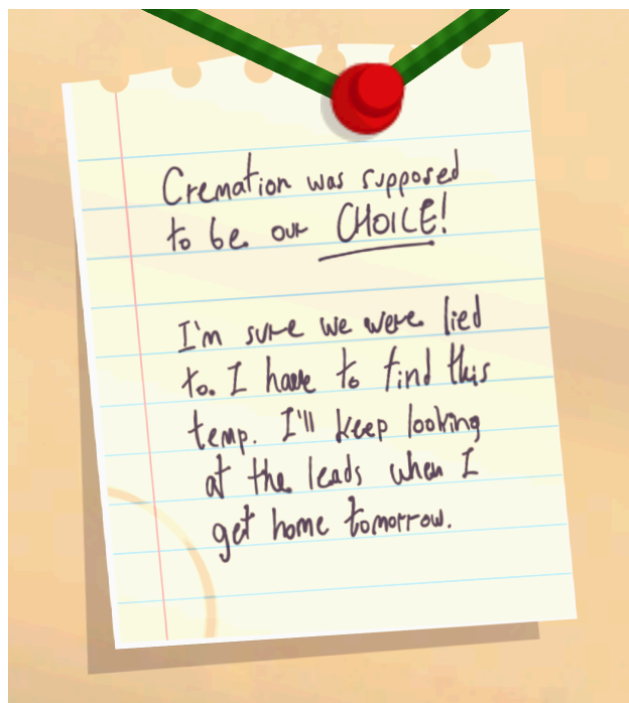 Cremation was supposed
to be our CHOICE!
I'm sure we were lied
to. I have to find this
temp. I'll keep looking
at the leads when I
get home tomorrow.